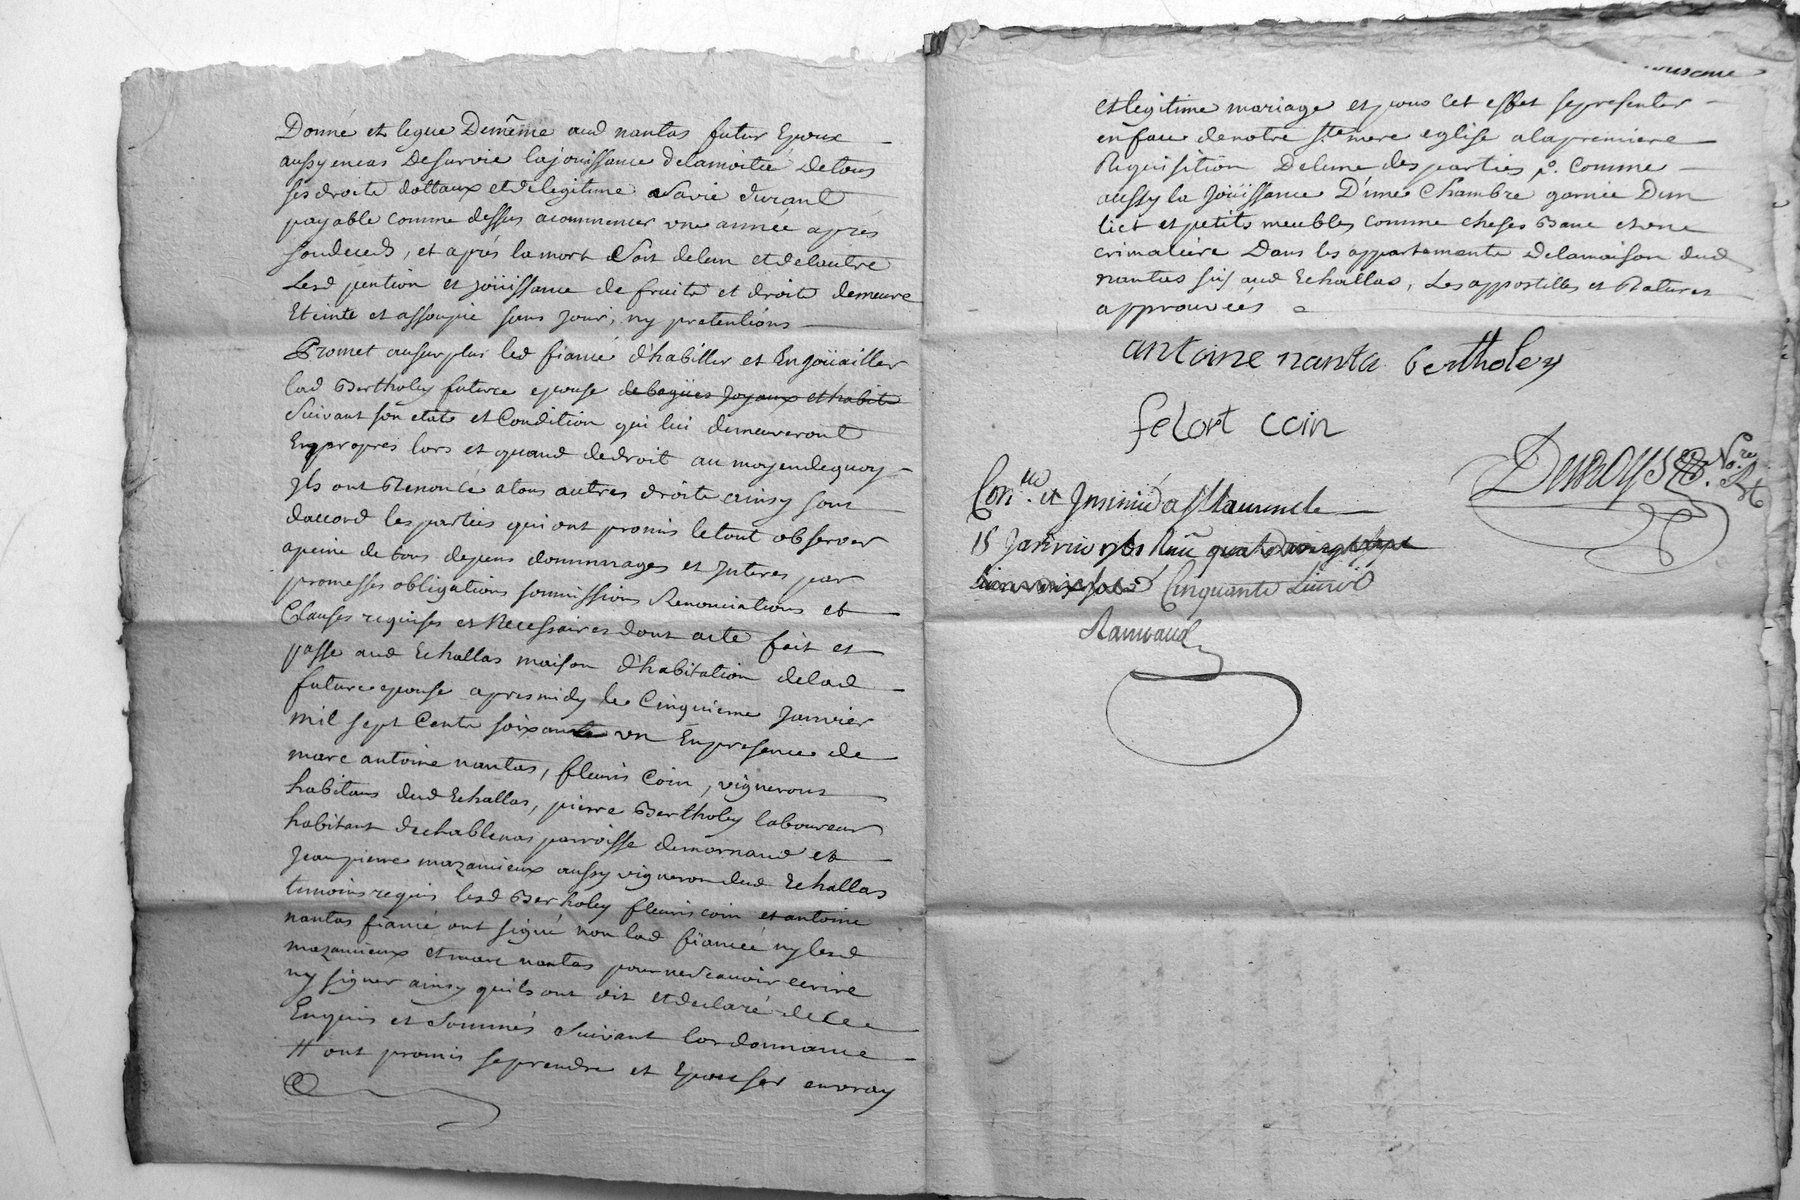 Donné et legue Demême aud nantas futur Epoux
aussy encas Desurvie lajouissance delamoitié Detous
ses droits dottaux et delegitime Savie durant
payable comme dessus acommencer une année après
sondeceds, et après lamort Soit delun et delautre
Lesd pention et joüissance de fruits et droits demeure
Eteinte et assoupie sans jour, ny pretentions
Promet ausurplus led fiancé d'habiller et Enjoüailler
lad Bertholey future epouse de bagües Joyaux et habits
Suivant son etats et Condition qui lui demeureront
Enpropres lors et quand dedroit au moyendequoy
Ils ont Renoncé atous autres droits ainsy sont
daccord les parties qui ont promis letout observer
apeine de tous depens dommages et Interes par
promesses obligations soumissions Renonciations et
Clauses requises et Necessaires dont acte fait et
passé aud Echallas maison d'habitation delad
future epouse apres midy le Cinquieme Janvier
mil sept Cents soixante un Enpresence de
marc antoine nantas, fleuris Coin, vignerons
habitans dud Echallas, pierre Bertholey laboureur
habitant dechablenas parroisse demornand et
Jean pierre mazamieux aussy vigneron dud Echallas
temoins requis lesd Bertholey fleuris coin et antoine
nantas fiancé ont signé non lad fiancée ny lesd
mazamieux et marc nantas pour nescavoir ecrire
ny signer ainsy quils ont dit et declaré dece
Enquis et Sommés Suivant lordonnance
# ont promis seprendre et Epouser envray
et legitime mariage et pour Cet effet sepresenter
enface denotre Ste mere eglise alapremiere
Requisition Delune des parties Comme
aussy la Joüissance D'une Chambre garnie Dun
lict et petits meubles comme cheses Banc et une
crimaliere Dans les appartements delamaison dud
nantas sis aud Echallas, Les appostilles et Ratures
approuvées
antoine nanta bertholey
felort coin
Duroys Nore Rl
Conlé et Insinué a St
15 Janvier 1761 Reçu
Cinquante Livres